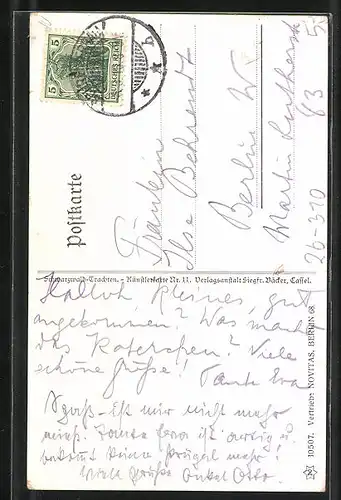 Postkarte
DEUTSCHES REICH
5
5
Fräulein
Ilse Behrendt
Berlin W.
Martin Lutherstr
83
26-310
Schwarzwald-Trachten. - Künstlerkarte Nr. 11. Verlagsanstalt Siegfr. Bäcker, Cassel.
Halloh, Kleines, gut
angekommen? Was macht
das Katerchen? Viele
schöne Grüße! Tante Eva
Spaß ist mir nicht mehr
Tante Eva ist artig
bekomt keine Prügel mehr!
Viele Grüße Onkel Otto.
10507. Vertrieb: NOVITAS, BERLIN 68